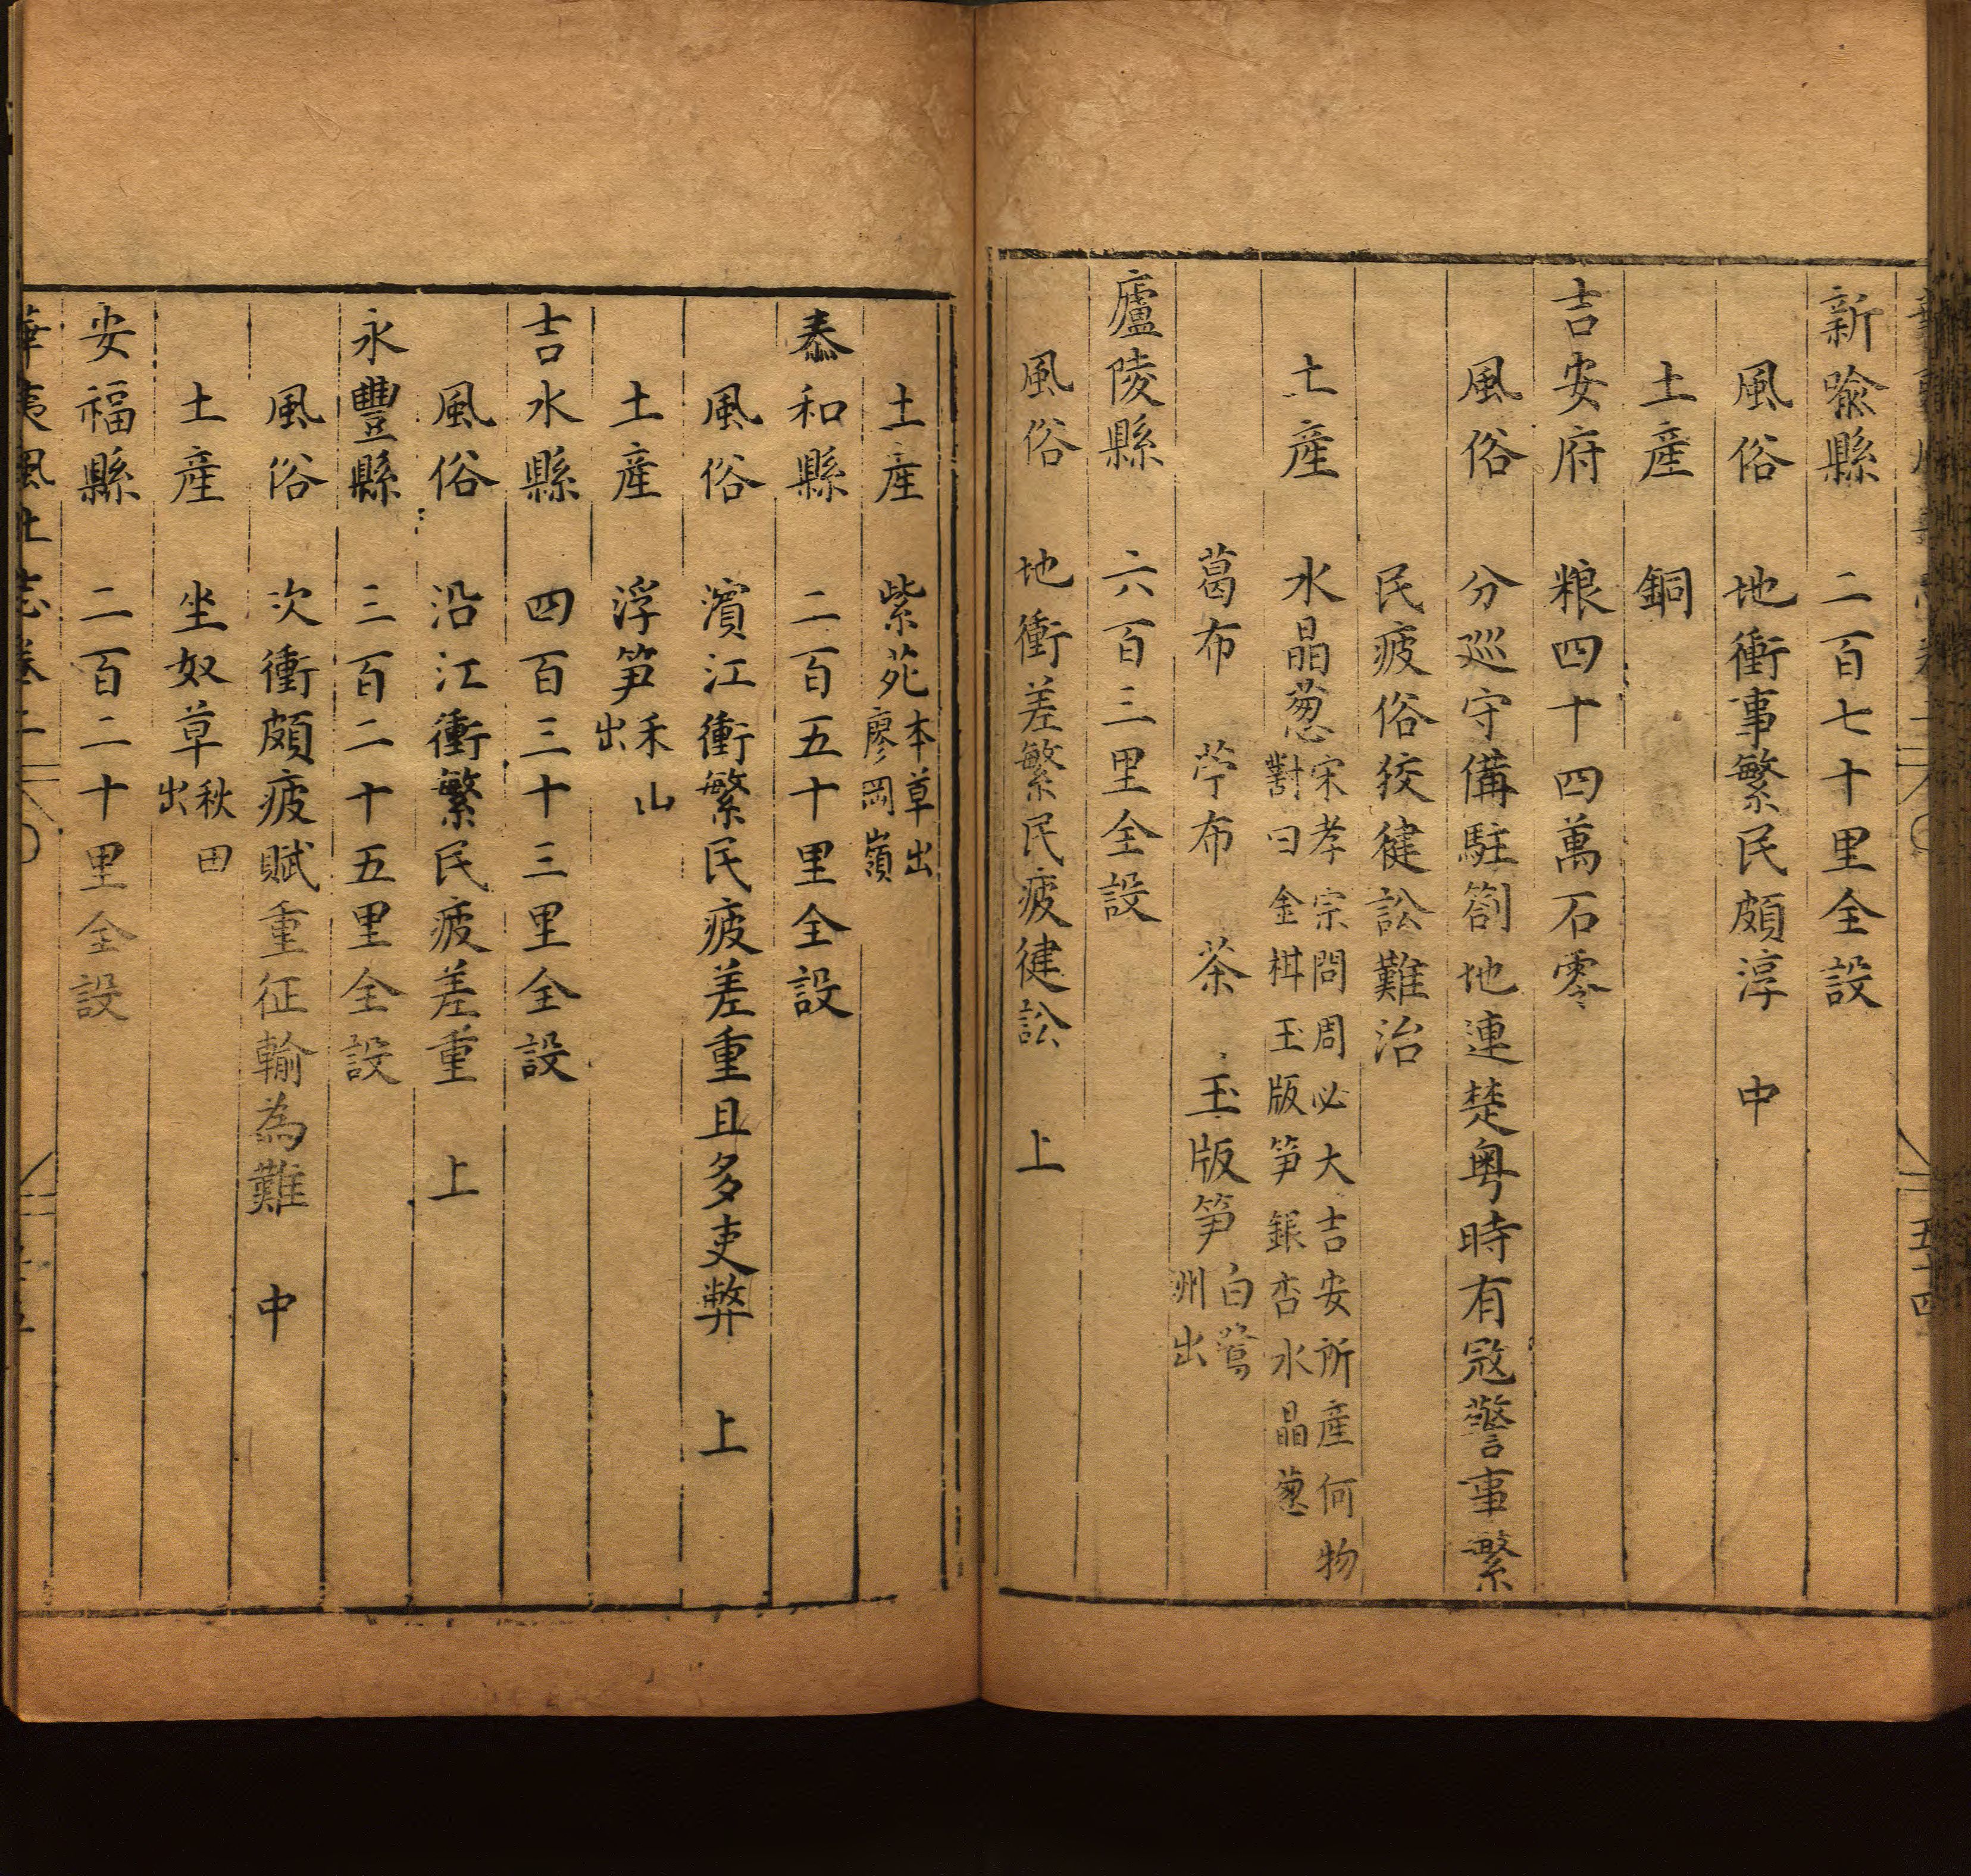 新喻縣 二百七十里全設
風俗 地衝事繁民頗淳 中
土產 銅
吉安府 粮四十四萬石零
風俗 分巡守備駐劄地連楚粵時有宼警事繁
民疲俗狡健訟難治
土產 水晶葱 宋孝宗問周必大吉安所產何物
對曰金柑玉版笋銀杏水晶葱
葛布 苧布 茶 玉版笋 白鷺
州出
廬陵縣 六百三里全設
風俗 地衝差繁民疲健訟 上
土產 紫苑 本草出
廖岡嶺
泰和縣 二百五十里全設
風俗 濱江衝繁民疲差重且多吏弊 上
土產 浮笋 禾山
出
吉水縣 四百三十三里全設
風俗 沿江衝繁民疲差重 上
永豐縣 三百二十五里全設
風俗 次衝頗疲賦重征輸為難 中
土產 坐奴草 秋田
出
安福縣 二百二十里全設
華夷風土志卷二